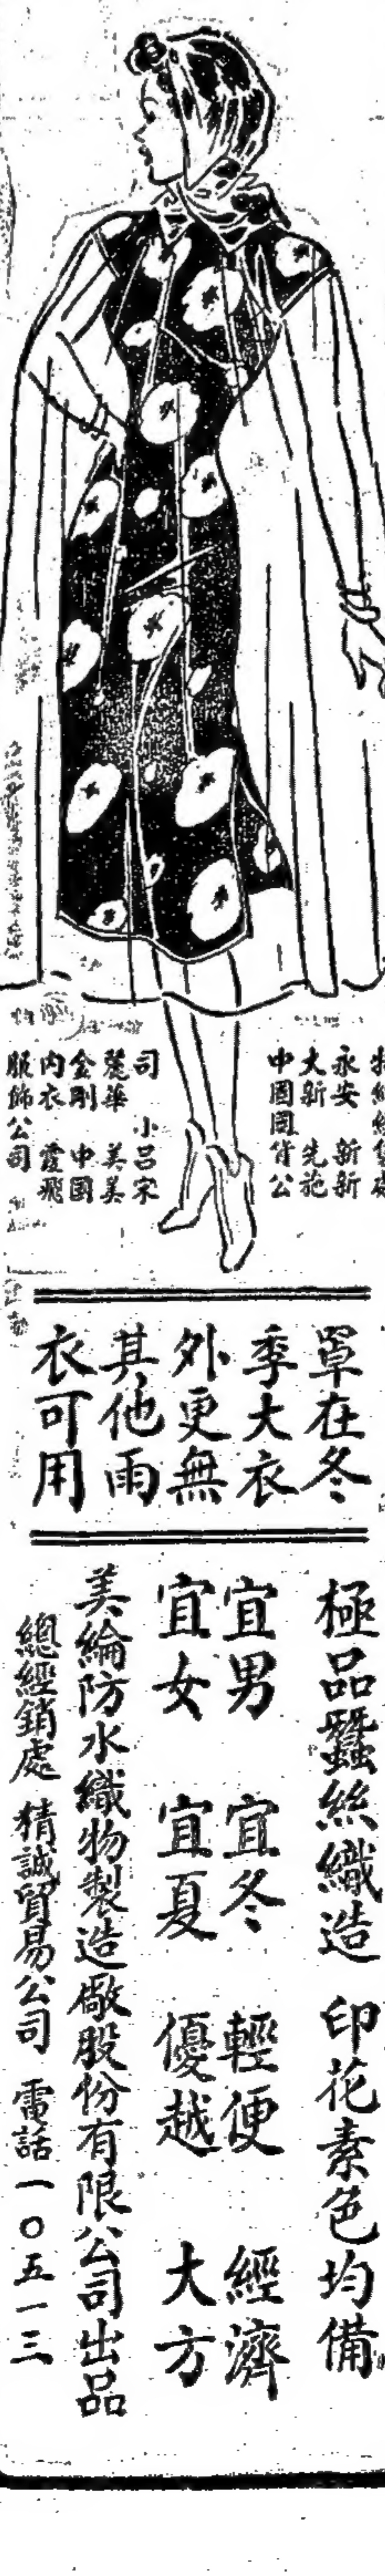 永安　新新
大新　先施
中國國貨公
司　小呂宋
麗華　美美
金剛　中國
內衣　霞飛
服飾公司
罩在冬
季大衣
外更無
其他雨
衣可用
極品蠶絲織造　印花素色均備
宜男　宜冬　輕便　經濟
宜女　宜夏　優越　大方
美綸防水織物製造廠股份有限公司出品
總經銷處　精誠貿易公司　電話一〇五一三